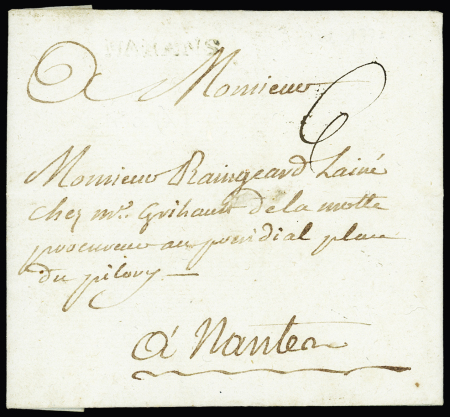 A Monsieur
6
Monsieur Raingeard Lainé
chez mr. Grihault de la motte
procureur au presidial place
du pilory
à Nantes